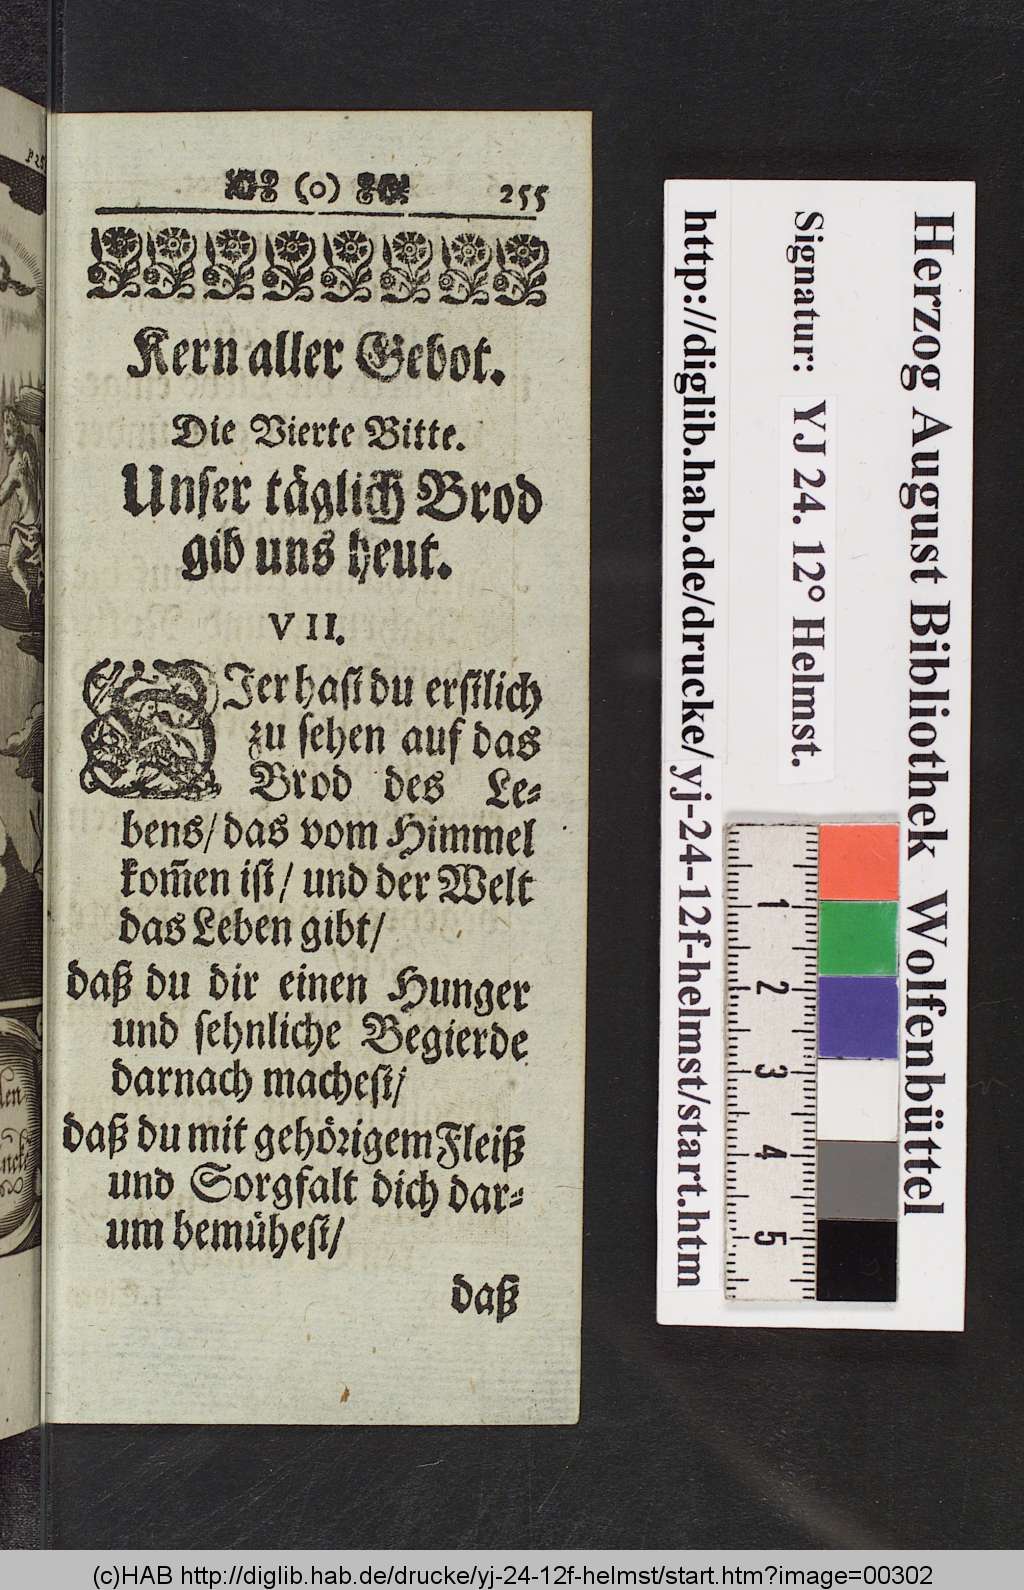 (o) 255
Kern aller Gebot.
Die Vierte Bitte.
Unser täglich Brod
gib uns heut.
VII.
HIer hast du erstlich
zu sehen auf das
Brod des Le-
bens/ das vom Himmel
kom̃en ist/ und der Welt
das Leben gibt/
daß du dir einen Hunger
und sehnliche Begierde
darnach machest/
daß du mit gehörigem Fleiß
und Sorgfalt dich dar-
um bemühest/
daß
Herzog August Bibliothek Wolfenbüttel
Signatur: YJ 24. 12° Helmst.
http://diglib.hab.de/drucke/yj-24-12f-helmst/start.htm
1
2
3
4
5
(c)HAB http://diglib.hab.de/drucke/yj-24-12f-helmst/start.htm?image=00302